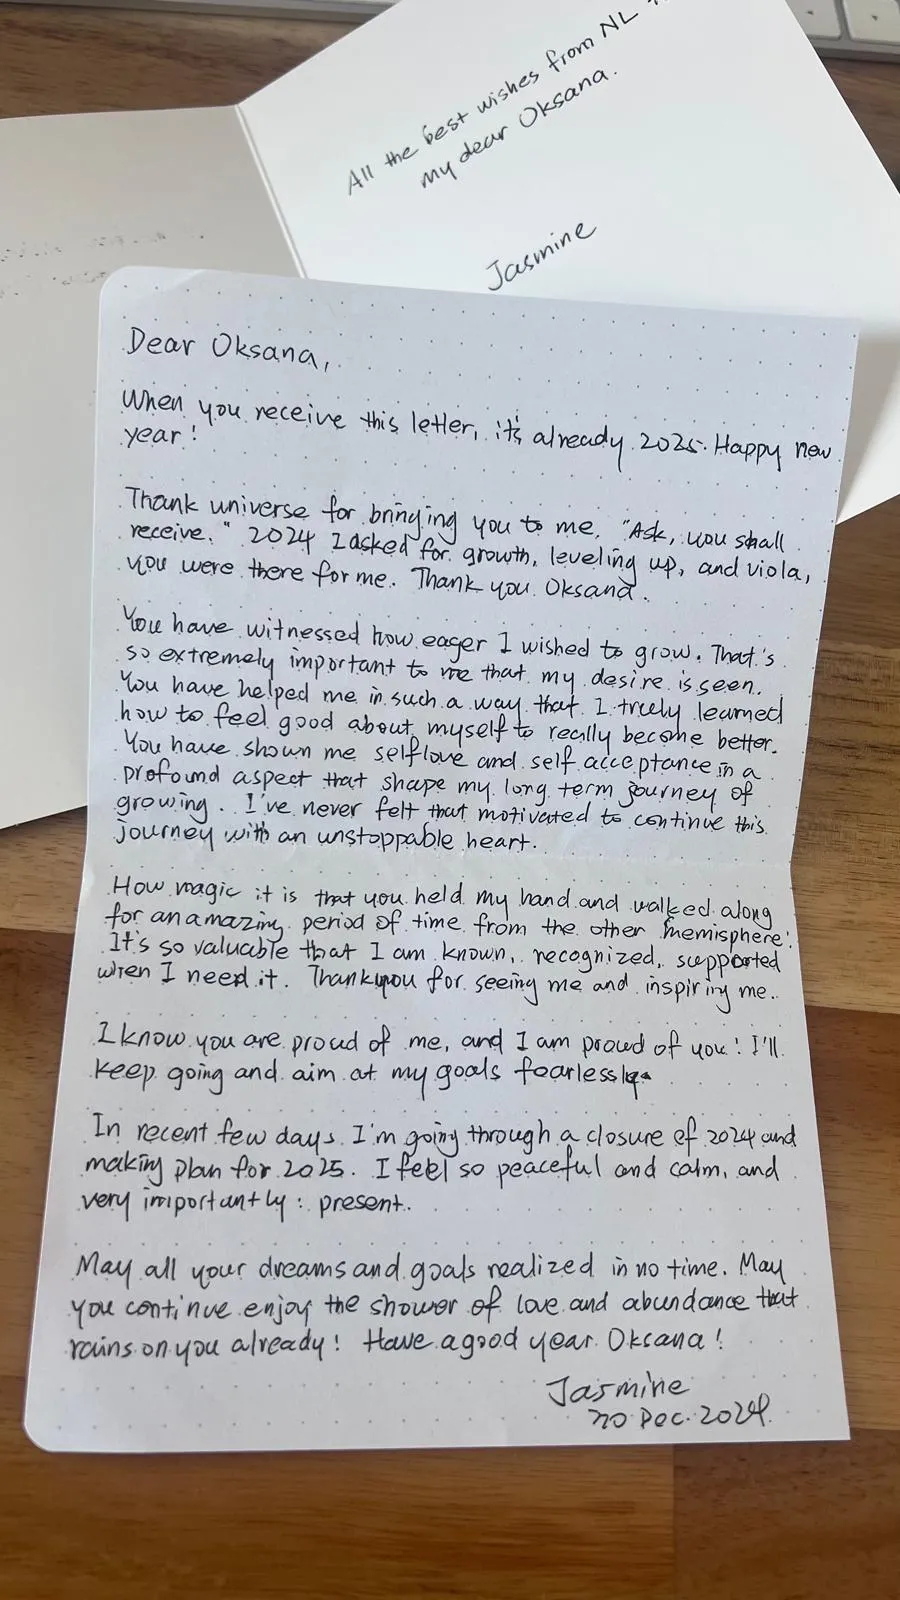 All the best wishes from NL
my dear Oksana.
Jasmine
Dear Oksana,
When you receive this letter, it's already 2025. Happy new
year!
Thank universe for bringing you to me. "Ask, you shall
receive." 2024 I asked for growth, leveling up, and viola,
you were there for me. Thank you Oksana.
You have witnessed how eager I wished to grow. That's
so extremely important to me that my desire is seen.
You have helped me in such a way that I truely learned
how to feel good about myself to really become better.
You have shown me selflove and self acceptance in a
profound aspect that shape my long term journey of
growing. I've never felt that motivated to continue this
journey with an unstoppable heart.
How magic it is that you held my hand and walked along
for an amazing period of time from the other hemisphere!
It's so valuable that I am known, recognized, supported
when I need it. Thank you for seeing me and inspiring me.
I know you are proud of me, and I am proud of you! I'll
keep going and aim at my goals fearlessly.
In recent few days I'm going through a closure of 2024 and
making plan for 2025. I feel so peaceful and calm, and
very importantly: present.
May all your dreams and goals realized in no time. May
you continue enjoy the shower of love and abundance that
rains on you already! Have a good year Oksana!
Jasmine
20 Dec. 2024